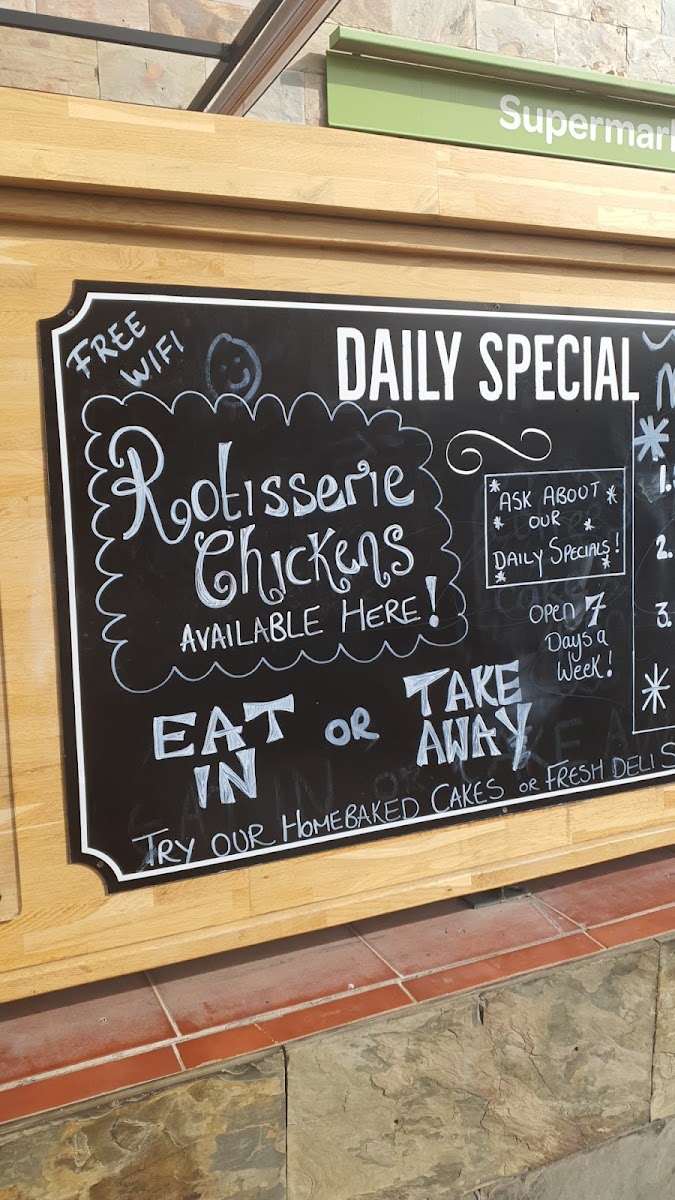 Supermar
FREE
WIFI
DAILY SPECIAL
Rotisserie
Chickens
AVAILABLE HERE!
ASK ABOUT
OUR
DAILY SPECIALS!
OPEN 7
Days a
Week!
1.
2.
3.
EAT
IN
OR
TAKE
AWAY
TRY OUR HOMEBAKED CAKES OR FRESH DELI S